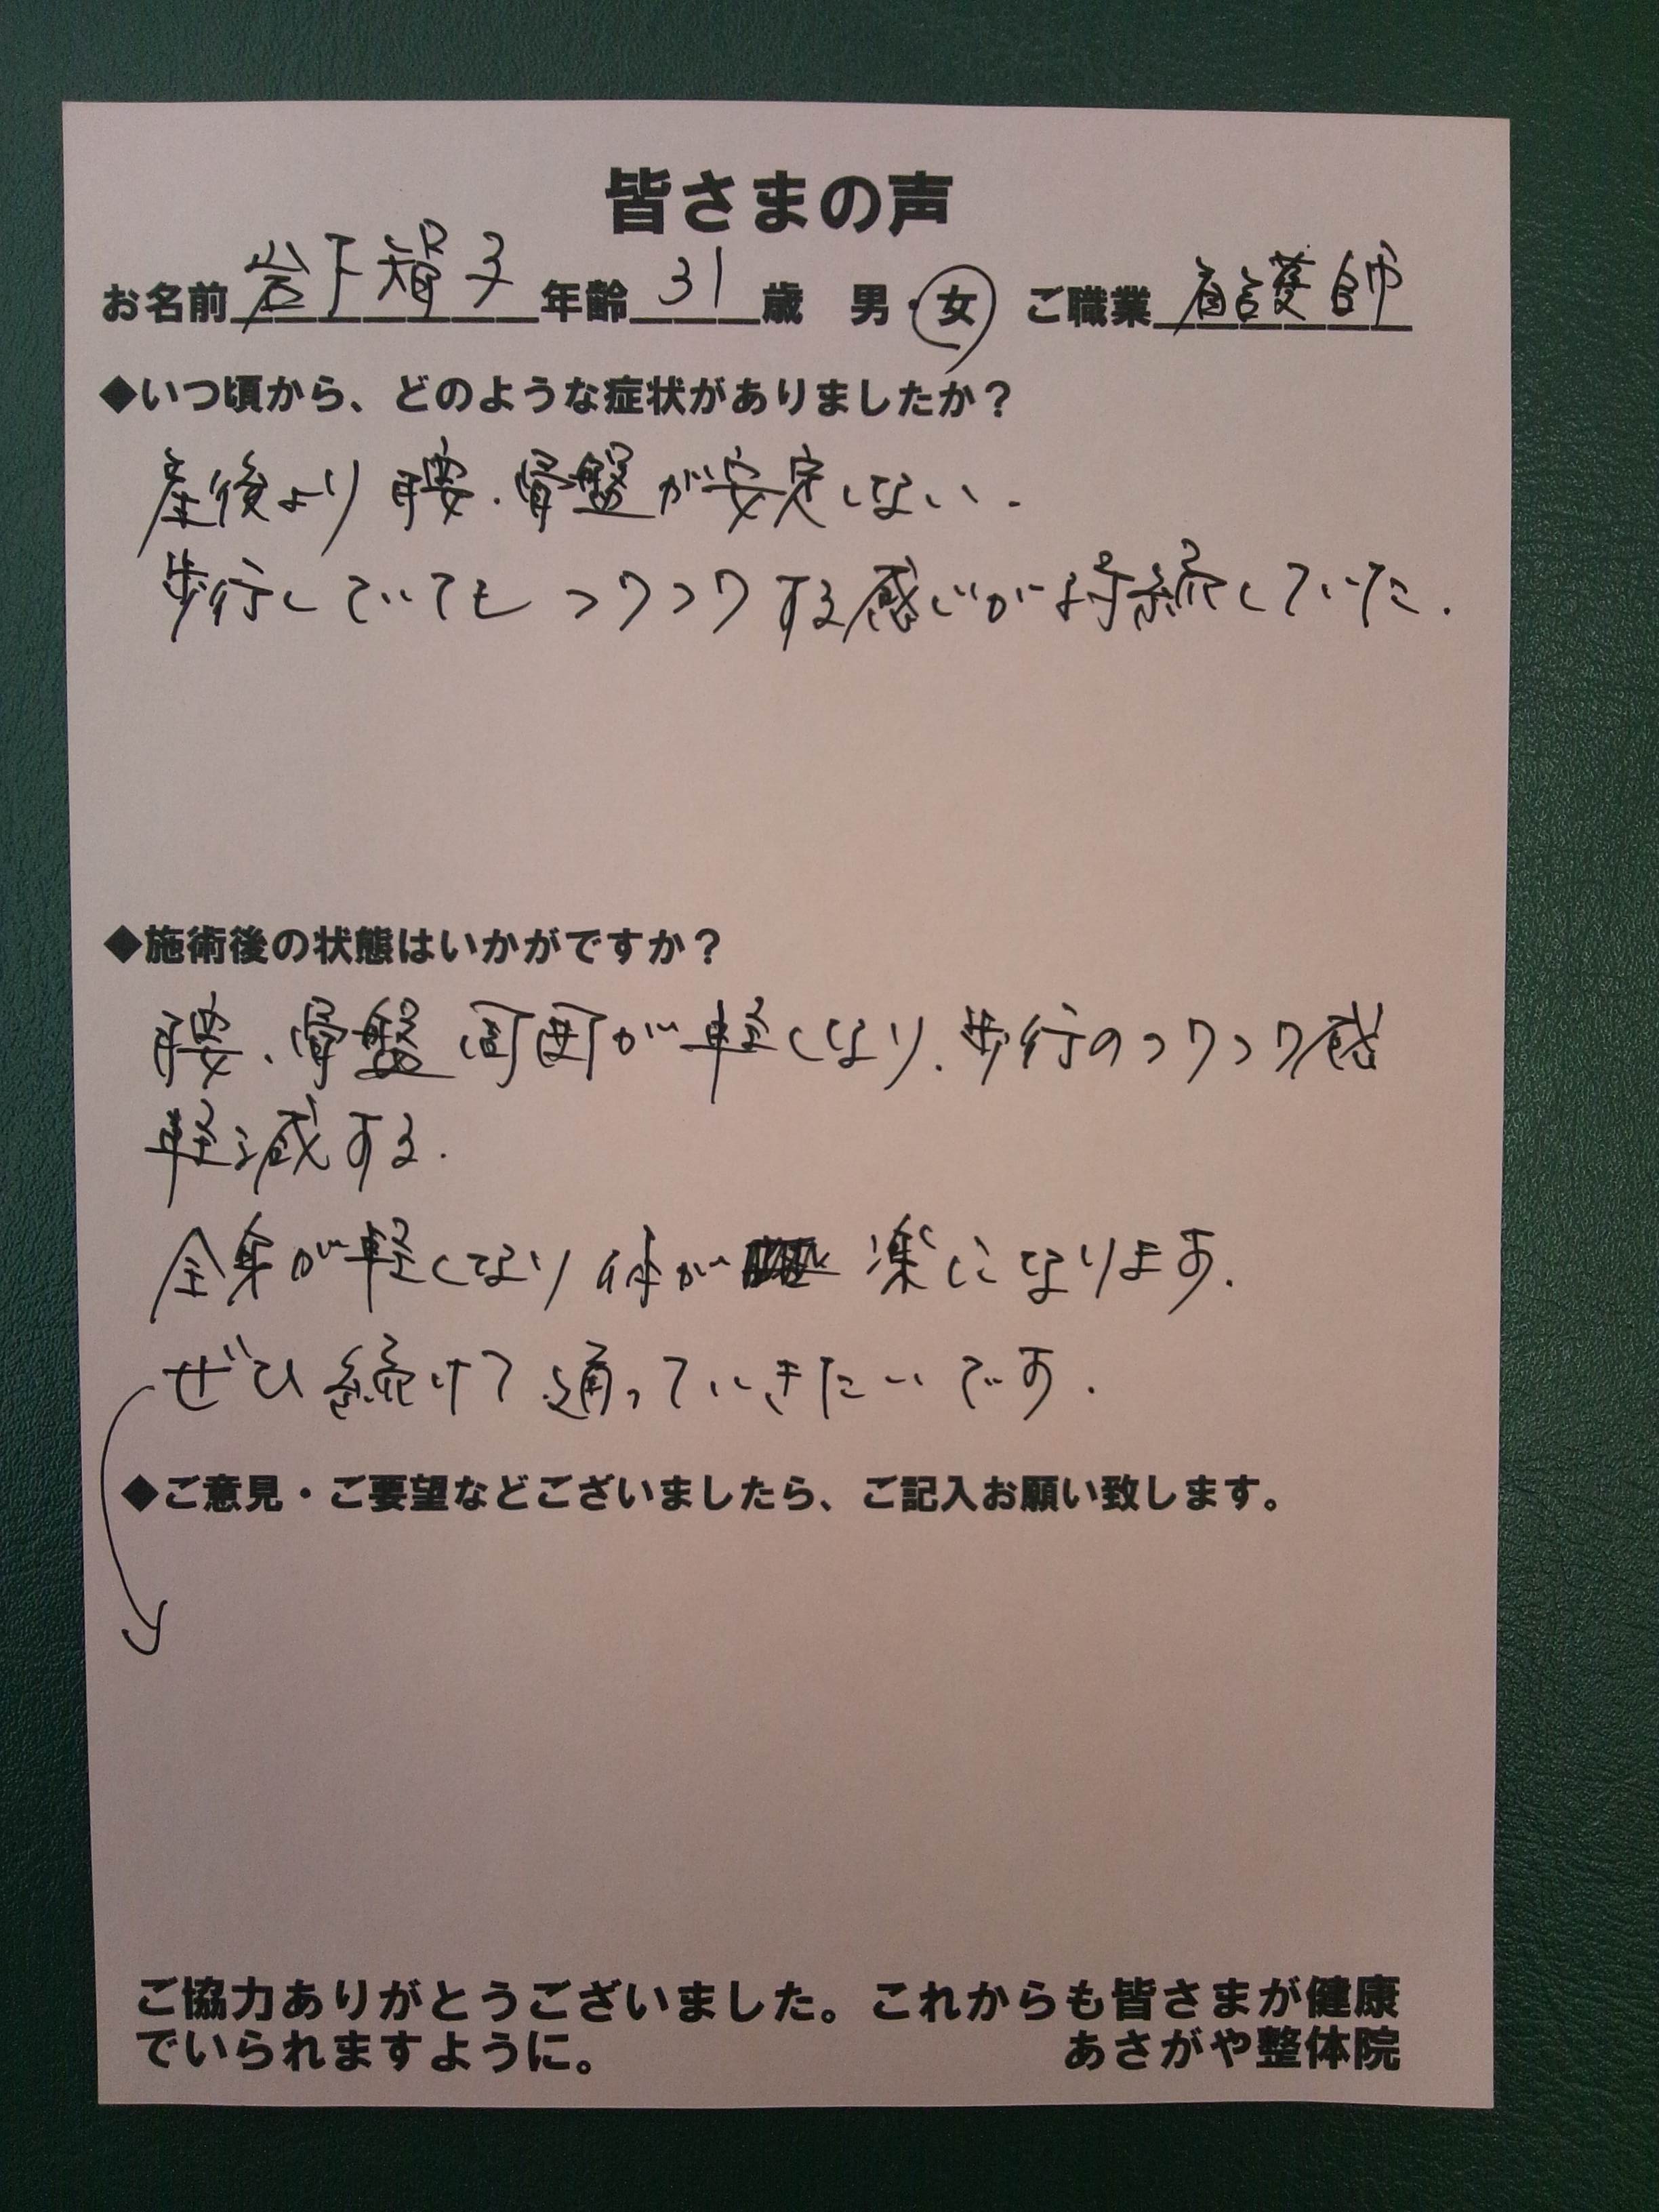 皆さまの声
お名前 岩下 子 年齢 31 歳 男・女 ご職業 看護師
◆いつ頃から、どのような症状がありましたか？
産後より 腰・骨盤が安定しない.
歩行していても つワつワする感じが持続していた.
◆施術後の状態はいかがですか？
腰、骨盤周囲が軽くなり、歩行のつワつワ感
軽減する.
全身が軽くなり 体が 楽になります.
ぜひ続けて通っていきたいです.
◆ご意見・ご要望などございましたら、ご記入お願い致します。
ご協力ありがとうございました。これからも皆さまが健康
でいられますように。 あさがや整体院